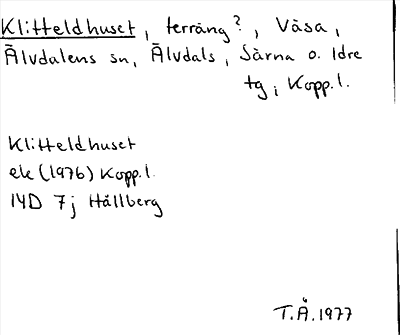 Klitteldhuset, terräng?, Våsa,
Älvdalens sn, Älvdals, Särna o. Idre
tg, Kopp.l.
Klitteldhuset
ek (1976) Kopp.l.
14D 7j Hållberg
T.Å.1977